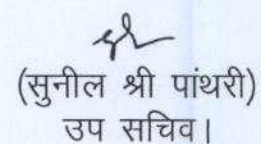 (सुनील श्री पांथरी)
उप सचिव।